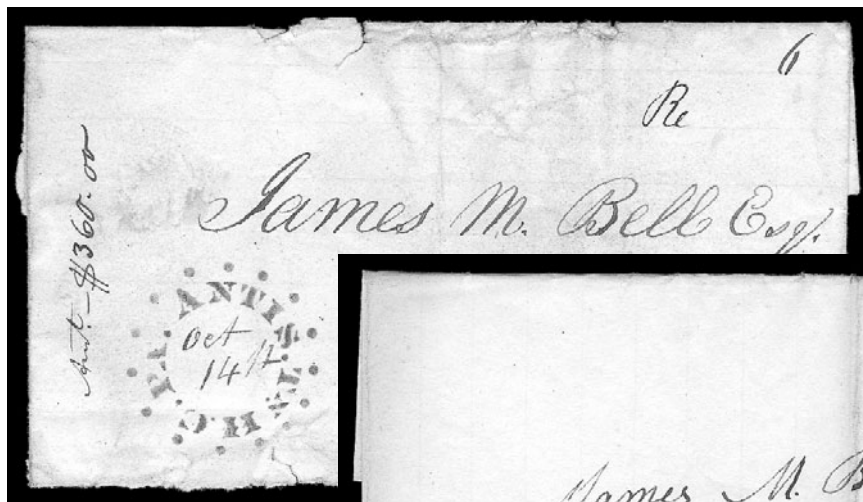 6
Re
James M. Bell Esqr.
Amt. - $360.00
ANTIS
H.C. PA.
Oct
14th
James M. B